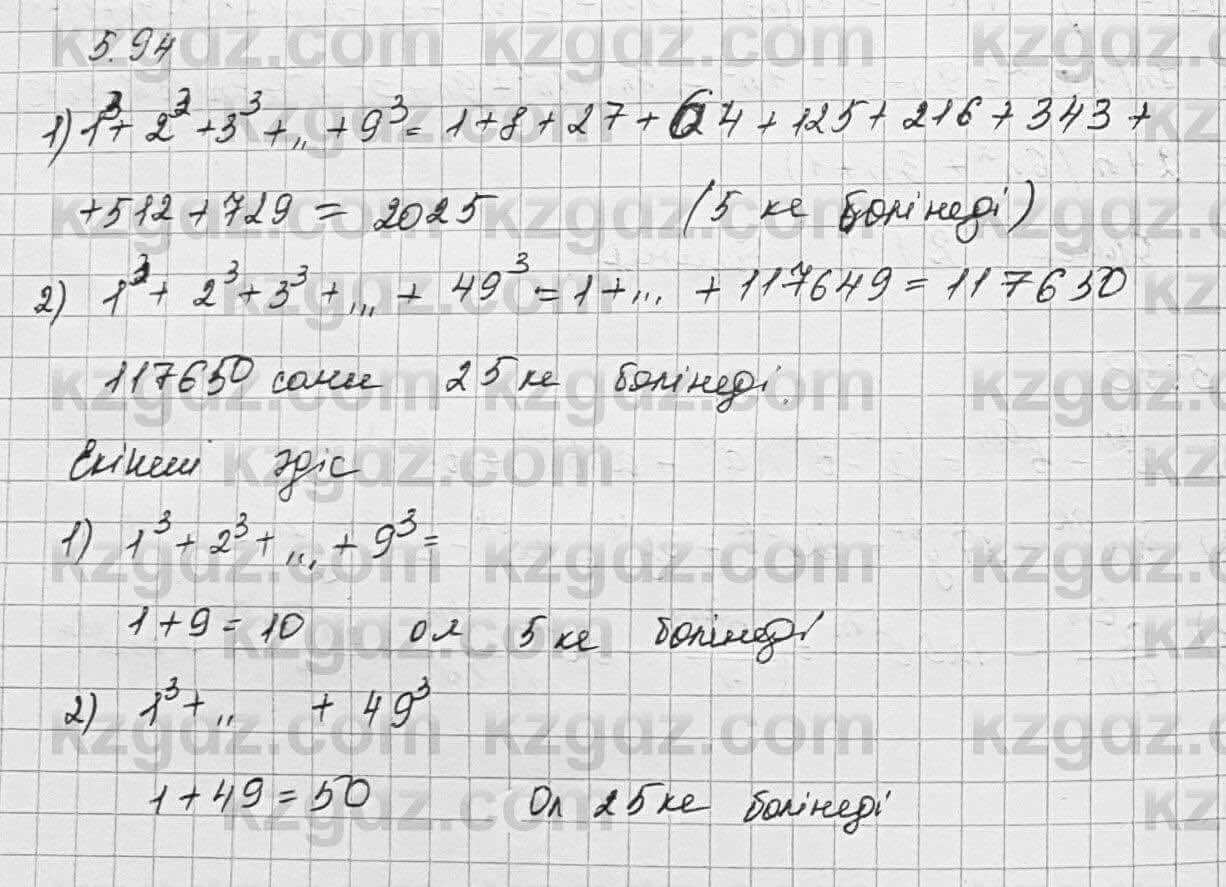 5.94
1) 1³ + 2³ + 3³ + ,, + 9³ = 1 + 8 + 27 + 64 + 125 + 216 + 343 +
+ 512 + 729 = 2025 (5 ке бөлінеді)
2) 1³ + 2³ + 3³ + ,,, + 49³ = 1 + ... + 117649 = 117650
117650 саны 25 ке бөлінеді.
Екінші әдіс
1) 1³ + 2³ + ,.., + 9³ =
1 + 9 = 10 ол 5 ке бөлінеді
2) 1³ + ,, + 49³
1 + 49 = 50 Ол 25 ке бөлінеді
kzgdz.com